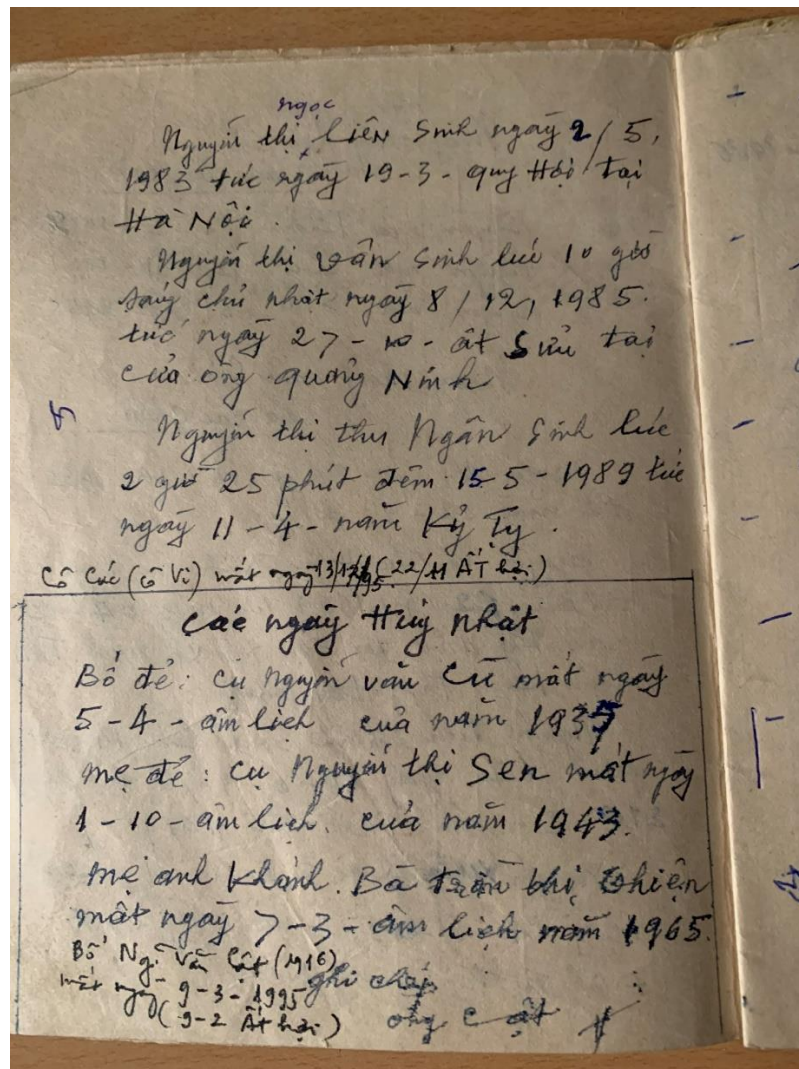 ngọc
Nguyễn thị liên Sinh ngày 2/5,
1983 tức ngày 19-3- quý Hợi tại
Hà Nội.
Nguyễn thị vân Sinh lúc 10 giờ
sáng chủ nhật ngày 8/12, 1985.
tức ngày 27-10- ất Sửu tại
cửa ông quảng Ninh
Nguyễn thị thu Ngân Sinh lúc
2 giờ 25 phút đêm 15-5-1989 tức
ngày 11-4- năm Kỷ Tỵ.
Cô Các (cô Vi) mất ngày 13/12/95 (22/11 ẤT hợi)
Các ngày Huý nhật
Bố đẻ: cụ Nguyễn văn Cừ mất ngày
5-4- âm lịch của năm
mẹ đẻ: cụ Nguyễn thị Sen mất ngày
1-10- âm lịch. của năm 1943.
mẹ anh Khánh. Bà trần thị
mất ngày 7-3- âm lịch năm 1965.
Bố Ng. Văn Cật (1916)
mất ngày 9-3-1995
(9-2 Ất hợi)
ghi chép
ông Cật